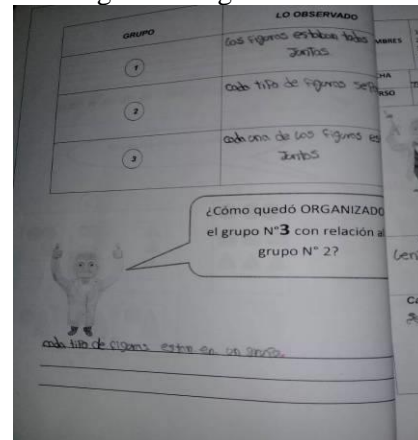 LO OBSERVADO
GRUPO
Las figuras estaban todas
Juntas
1
cada tipo de figuras
2
cada una de las figuras
Juntas
3
¿Cómo quedó ORGANIZADO
el grupo N°3 con relación a
grupo N° 2?
cada tipo de figuras están en un grupo.